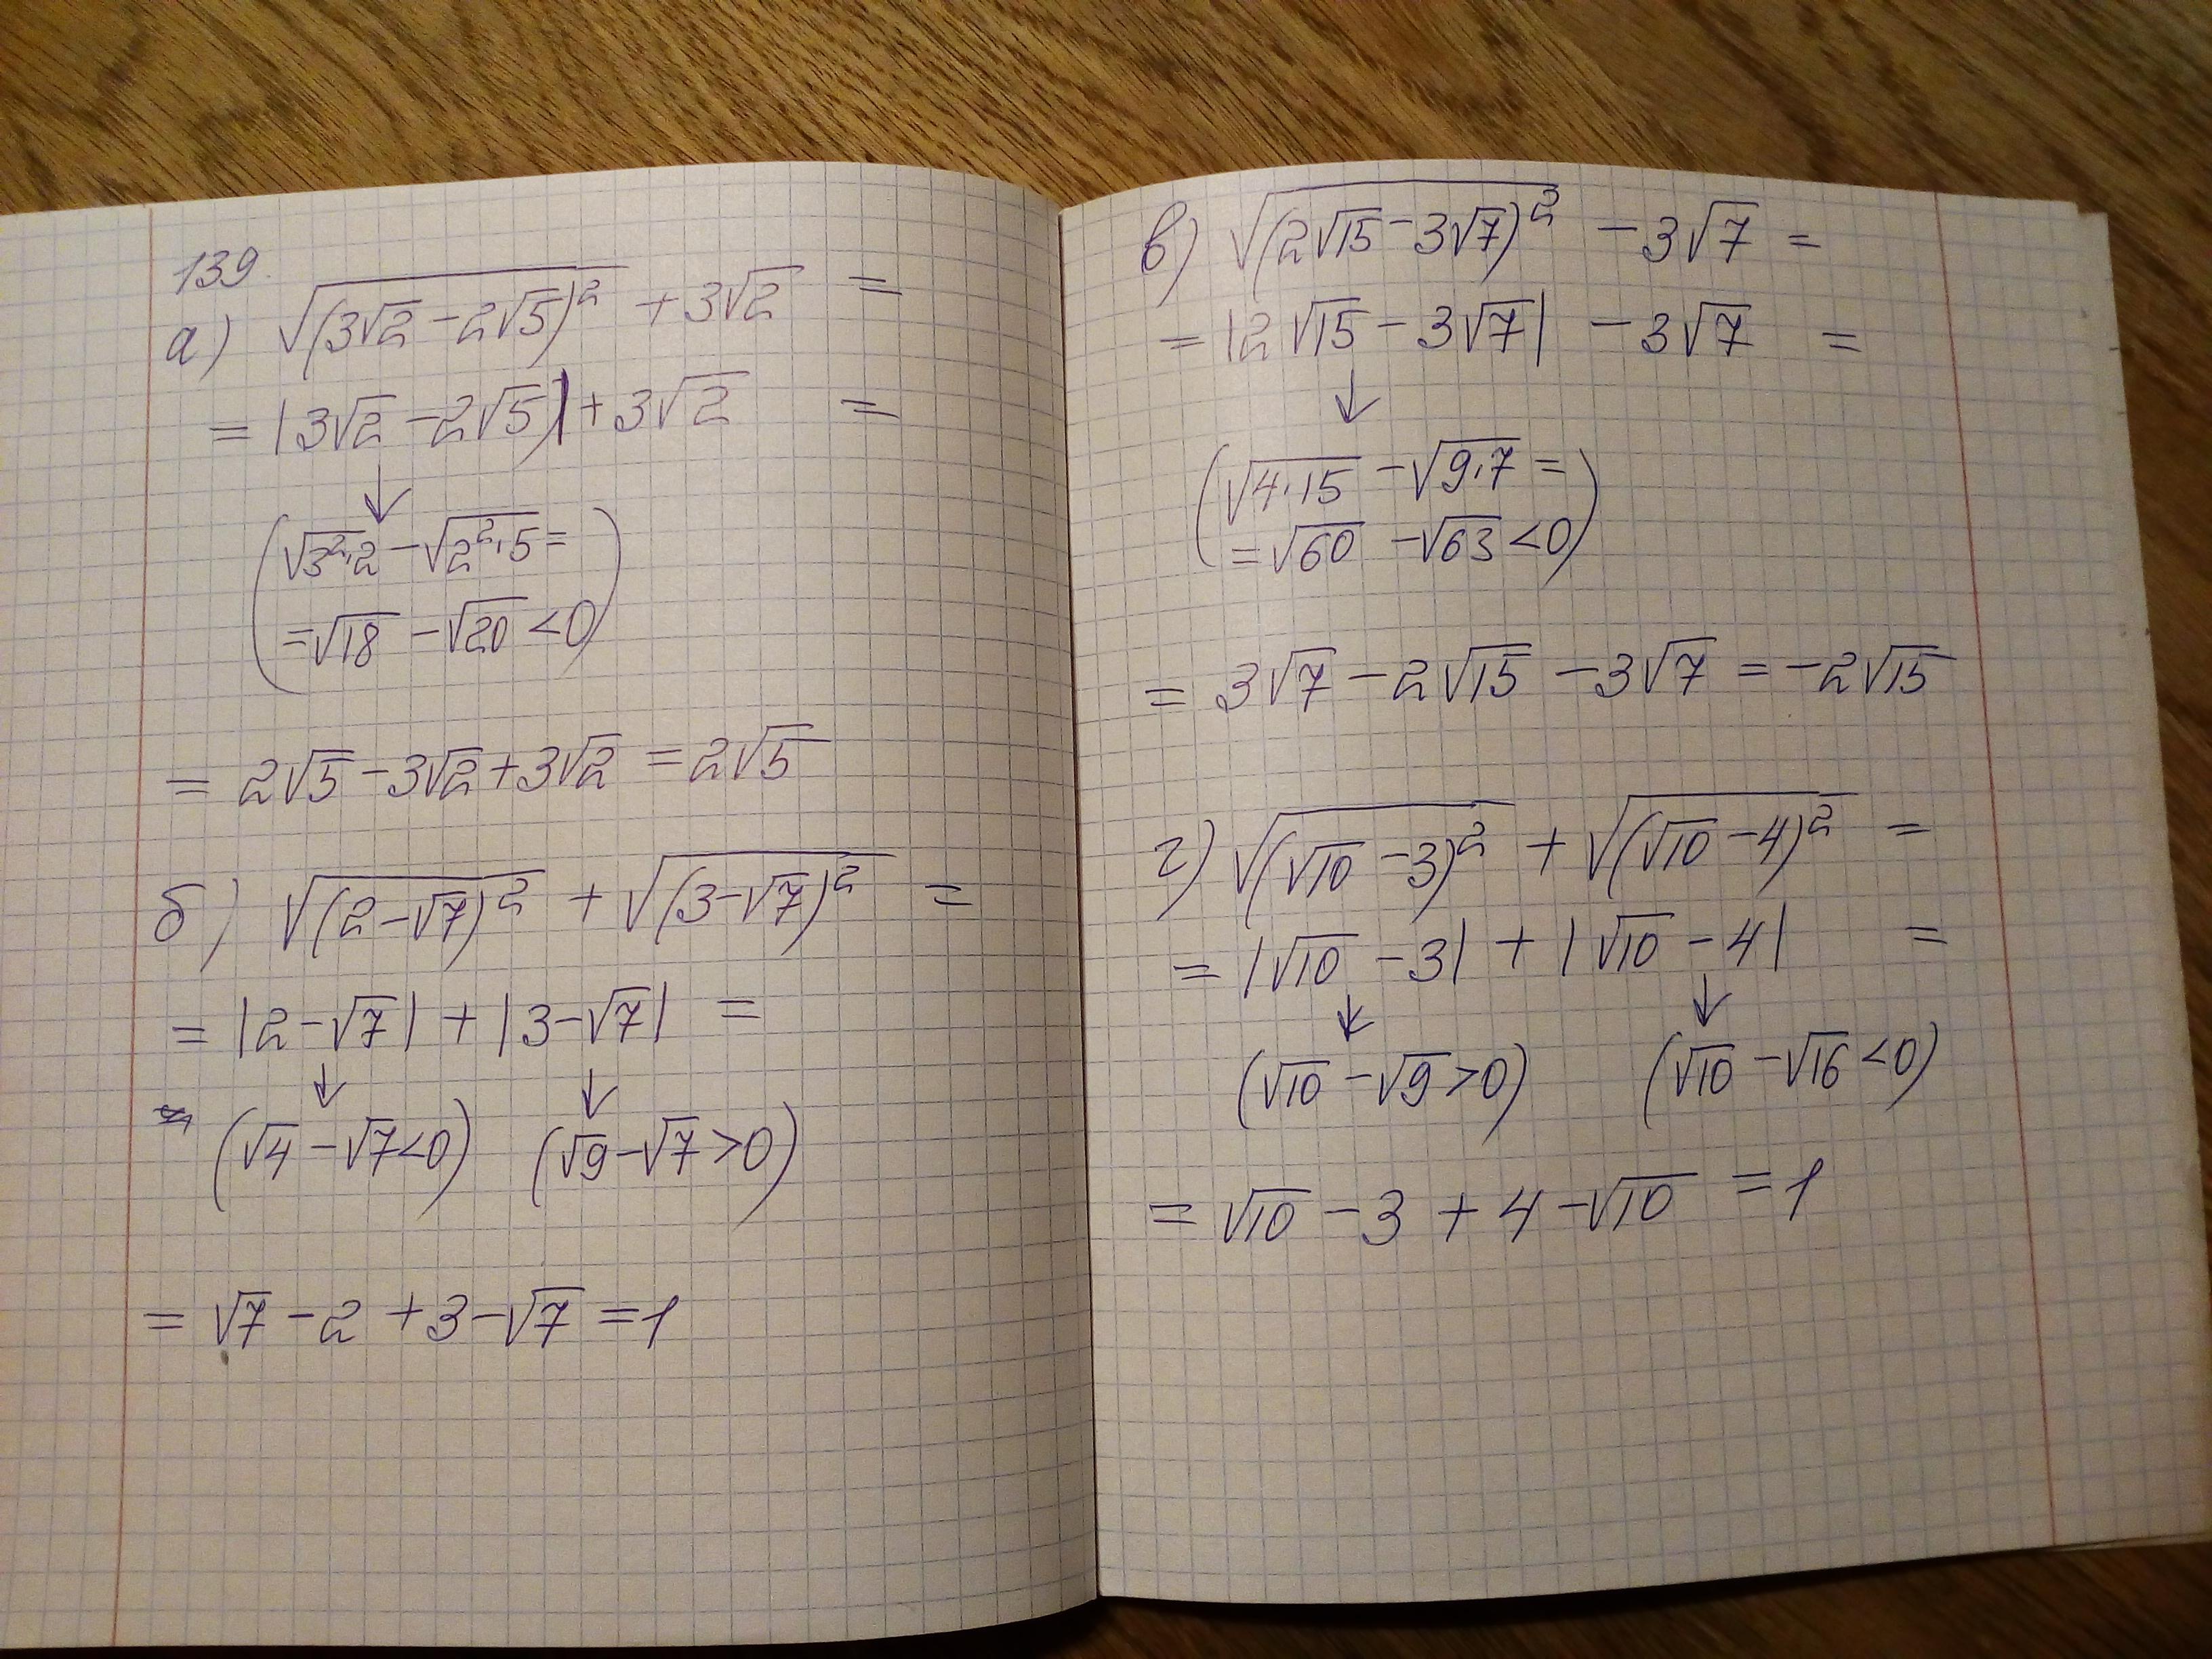 139.
а) √(3√2 - 2√5)² + 3√2 =
= |3√2 - 2√5| + 3√2 =
↓
(√3²·2 - √2²·5 =
= √18 - √20 < 0)
= 2√5 - 3√2 + 3√2 = 2√5
б) √(2 - √7)² + √(3 - √7)² =
= |2 - √7| + |3 - √7| =
↓ ↓
(√4 - √7 < 0) (√9 - √7 > 0)
= √7 - 2 + 3 - √7 = 1
в) √(2√15 - 3√7)² - 3√7 =
= |2√15 - 3√7| - 3√7 =
↓
(√4·15 - √9·7 =
= √60 - √63 < 0)
= 3√7 - 2√15 - 3√7 = -2√15
г) √(√10 - 3)² + √(√10 - 4)² =
= |√10 - 3| + |√10 - 4| =
↓ ↓
(√10 - √9 > 0) (√10 - √16 < 0)
= √10 - 3 + 4 - √10 = 1